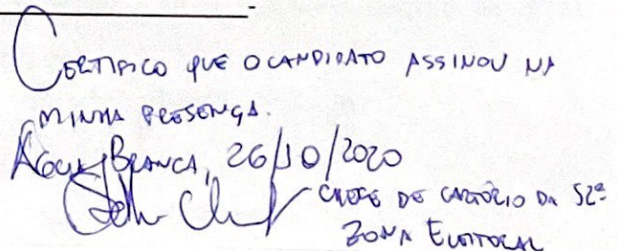 CERTIFICO QUE O CANDIDATO ASSINOU NA
MINHA PRESENÇA.
ÁGUA BRANCA, 26/10/2020
CHEFE DE CARTÓRIO DA 52ª
ZONA ELEITORAL